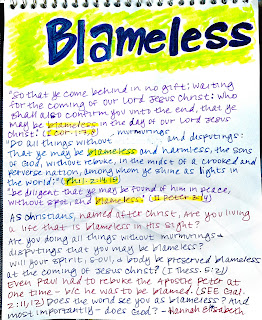 Blameless
"So that ye come behind in no gift: waiting
for the coming of our Lord Jesus Christ: Who
shall also confirm you unto the end, that ye
may be blameless in the day of our Lord Jesus
Christ." (I Cor. 1:7,8)
"Do all things without murmurings and disputings:
That ye may be blameless and harmless, the sons
of God, without rebuke, in the midst of a crooked and
perverse nation, among whom ye shine as lights in
the world:" (Phil. 2:14,15)
"be diligent that ye may be found of him in peace,
without spot, and blameless." (II Peter 3:14)
As christians, named after Christ, are you living
a life that is blameless in His sight?
Are you doing all things without murmurings &
disputings that you may be blameless?
Will your spirit, soul, & body be preserved blameless
at the coming of Jesus Christ? (I Thess. 5:2)
Even Paul had to rebuke the Apostle Peter at
one time - b/c he was to be blamed. (SEE Gal.
2:11,12) Does the world see you as blameless? And
most importantly - does God? - Hannah Elisabeth